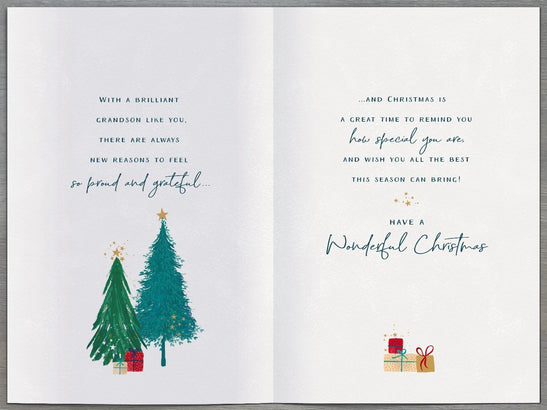 With a brilliant
grandson like you,
there are always
new reasons to feel
so proud and grateful...
...and Christmas is
a great time to remind you
how special you are,
and wish you all the best
this season can bring!
Have a
Wonderful Christmas